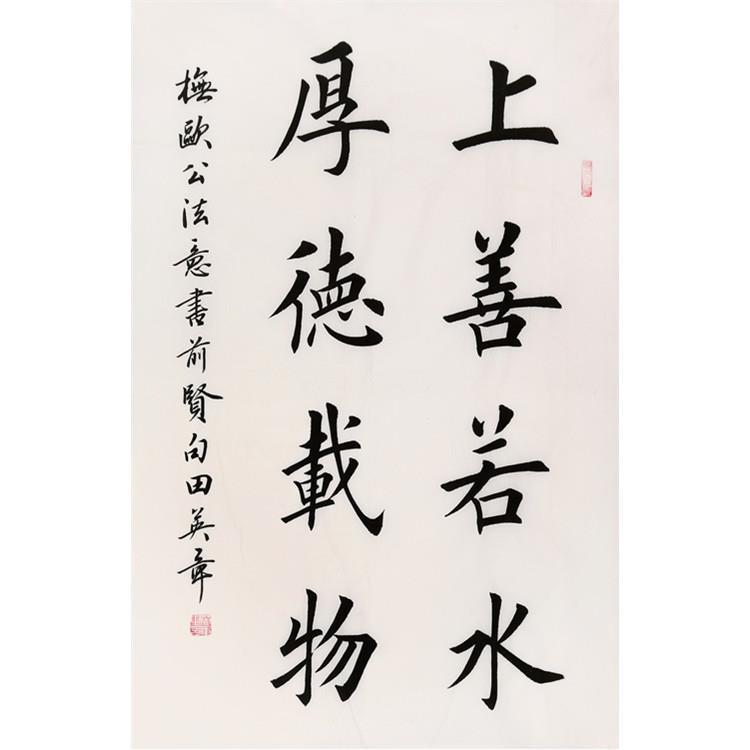 上善若水
厚德載物
橅歐公法意書前賢句田英章